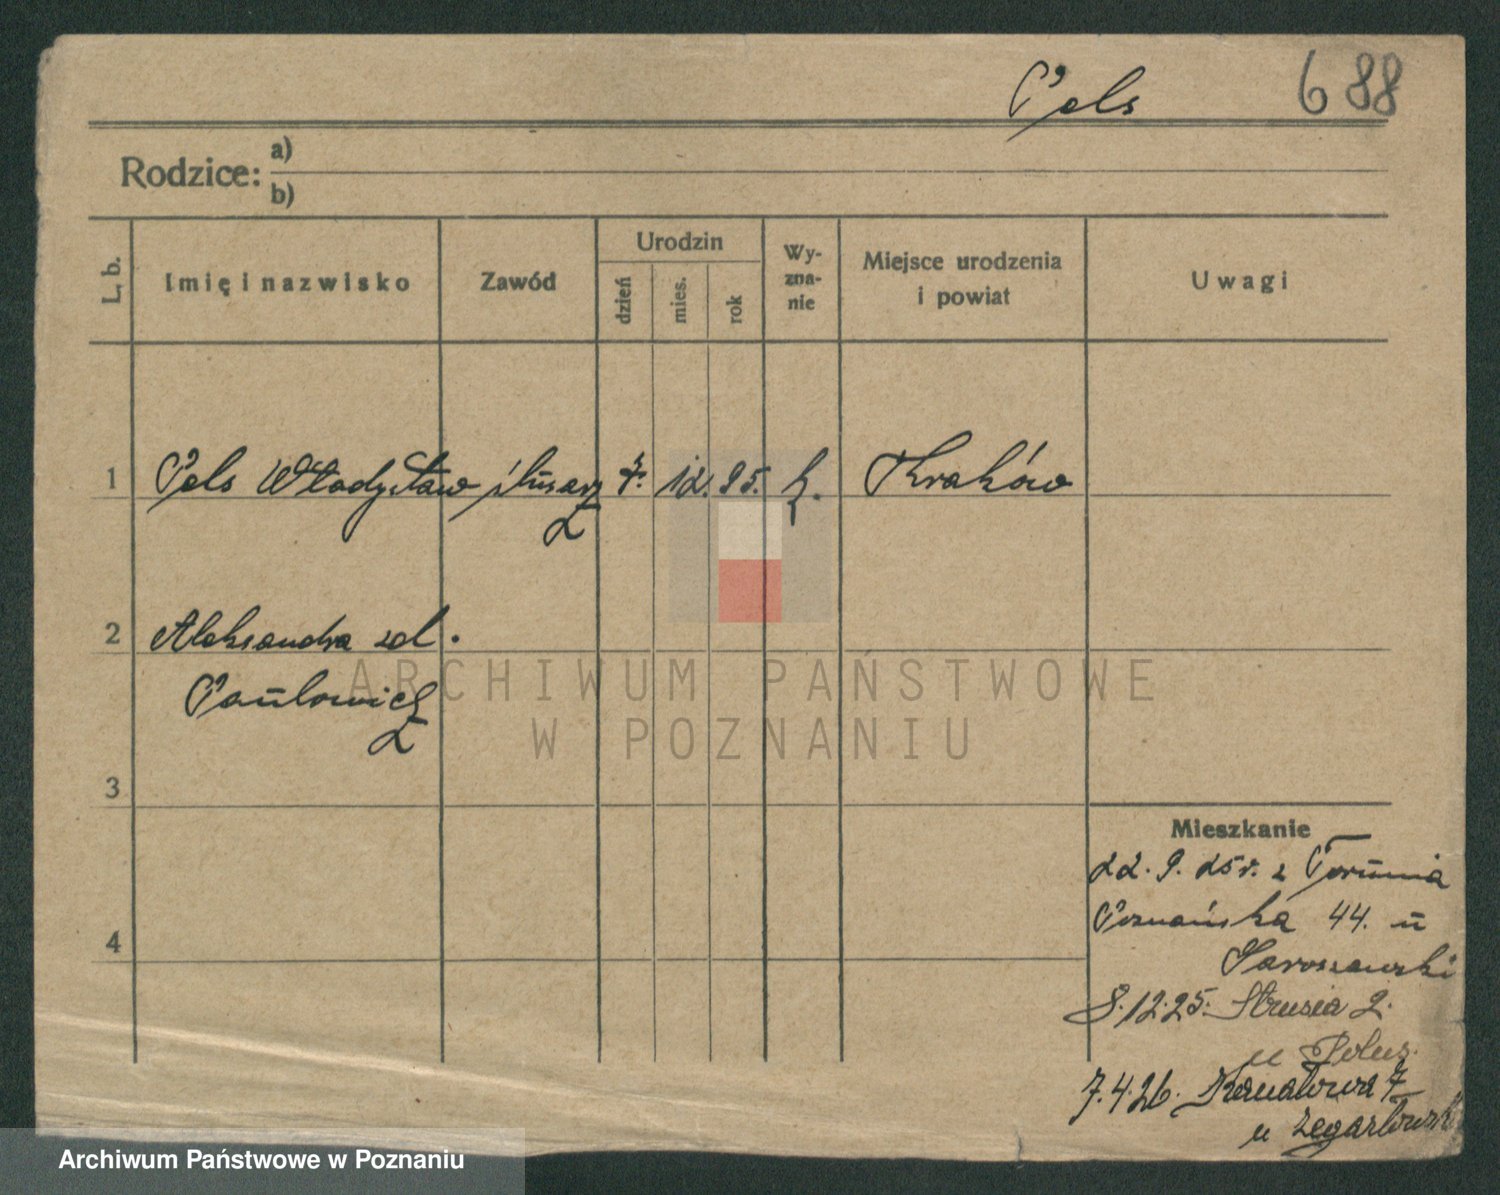 Pels 688
Rodzice: a)
b)
L. b. Imię i nazwisko Zawód Urodzin dzień mies. rok Wy-zna-nie Miejsce urodzenia i powiat Uwagi
1 Pels Władysław ślusarz 7. 12. 95. k. Kraków
2 Aleksandra zd.
Paulowicz
3
4
Mieszkanie
22. 9. 25r. z Torunia
Poznańska 44. u
8.12.25. Strusia 2.
u
7.4.26. Kanałowa 7
u
ARCHIWUM PAŃSTWOWE
W POZNANIU
Archiwum Państwowe w Poznaniu